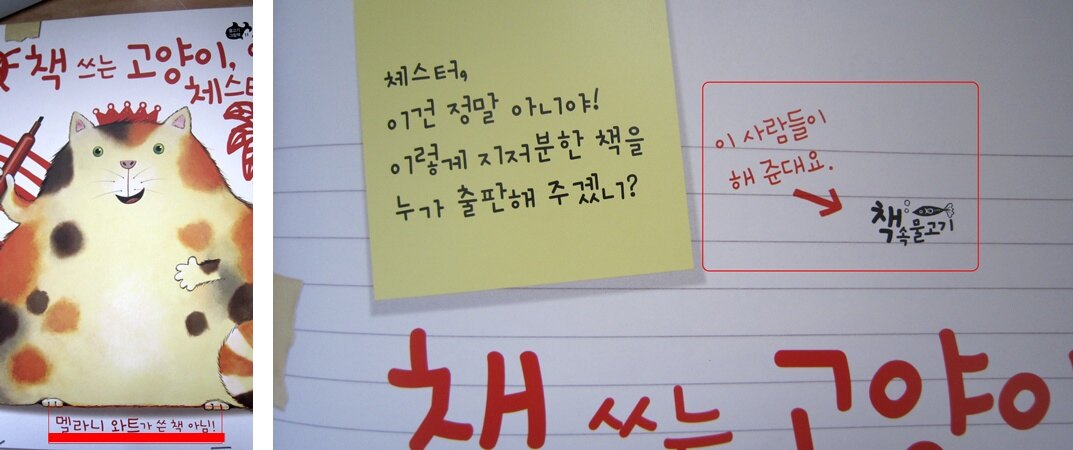 책 쓰는 고양이,
체스터
멜라니 와트가 쓴 책 아님!
체스터,
이건 정말 아니야!
이렇게 지저분한 책을
누가 출판해 주겠니?
이 사람들이
해 준대요.
책
속물고기
책 쓰는 고양이